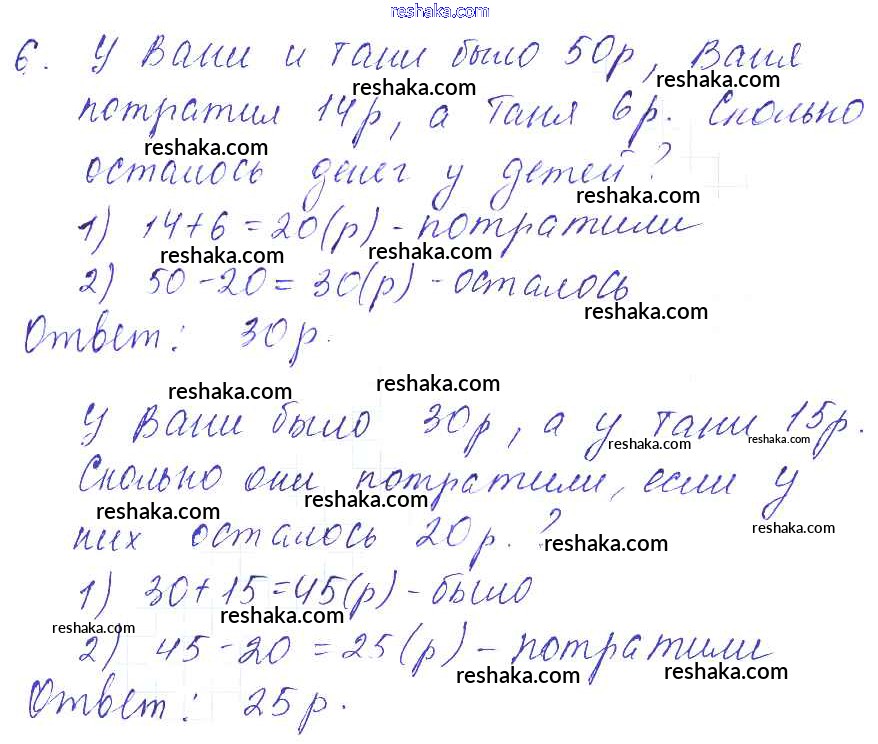 reshaka.com
6. У Вани и Тани было 50р, Ваня
reshaka.com reshaka.com
потратил 14р, а Таня 6р. Сколько
reshaka.com
осталось денег у детей?
reshaka.com
1) 14+6=20(р) - потратили
reshaka.com reshaka.com
2) 50-20=30(р) - осталось
reshaka.com
Ответ: 30р.
reshaka.com reshaka.com
У Вани было 30р, а у Тани 15р.
reshaka.com reshaka.com
Сколько они потратили, если у
reshaka.com reshaka.com reshaka.com
них осталось 20р.?
reshaka.com
1) 30+15=45(р) - было
reshaka.com reshaka.com
2) 45-20=25(р) - потратили
reshaka.com reshaka.com
Ответ: 25р.